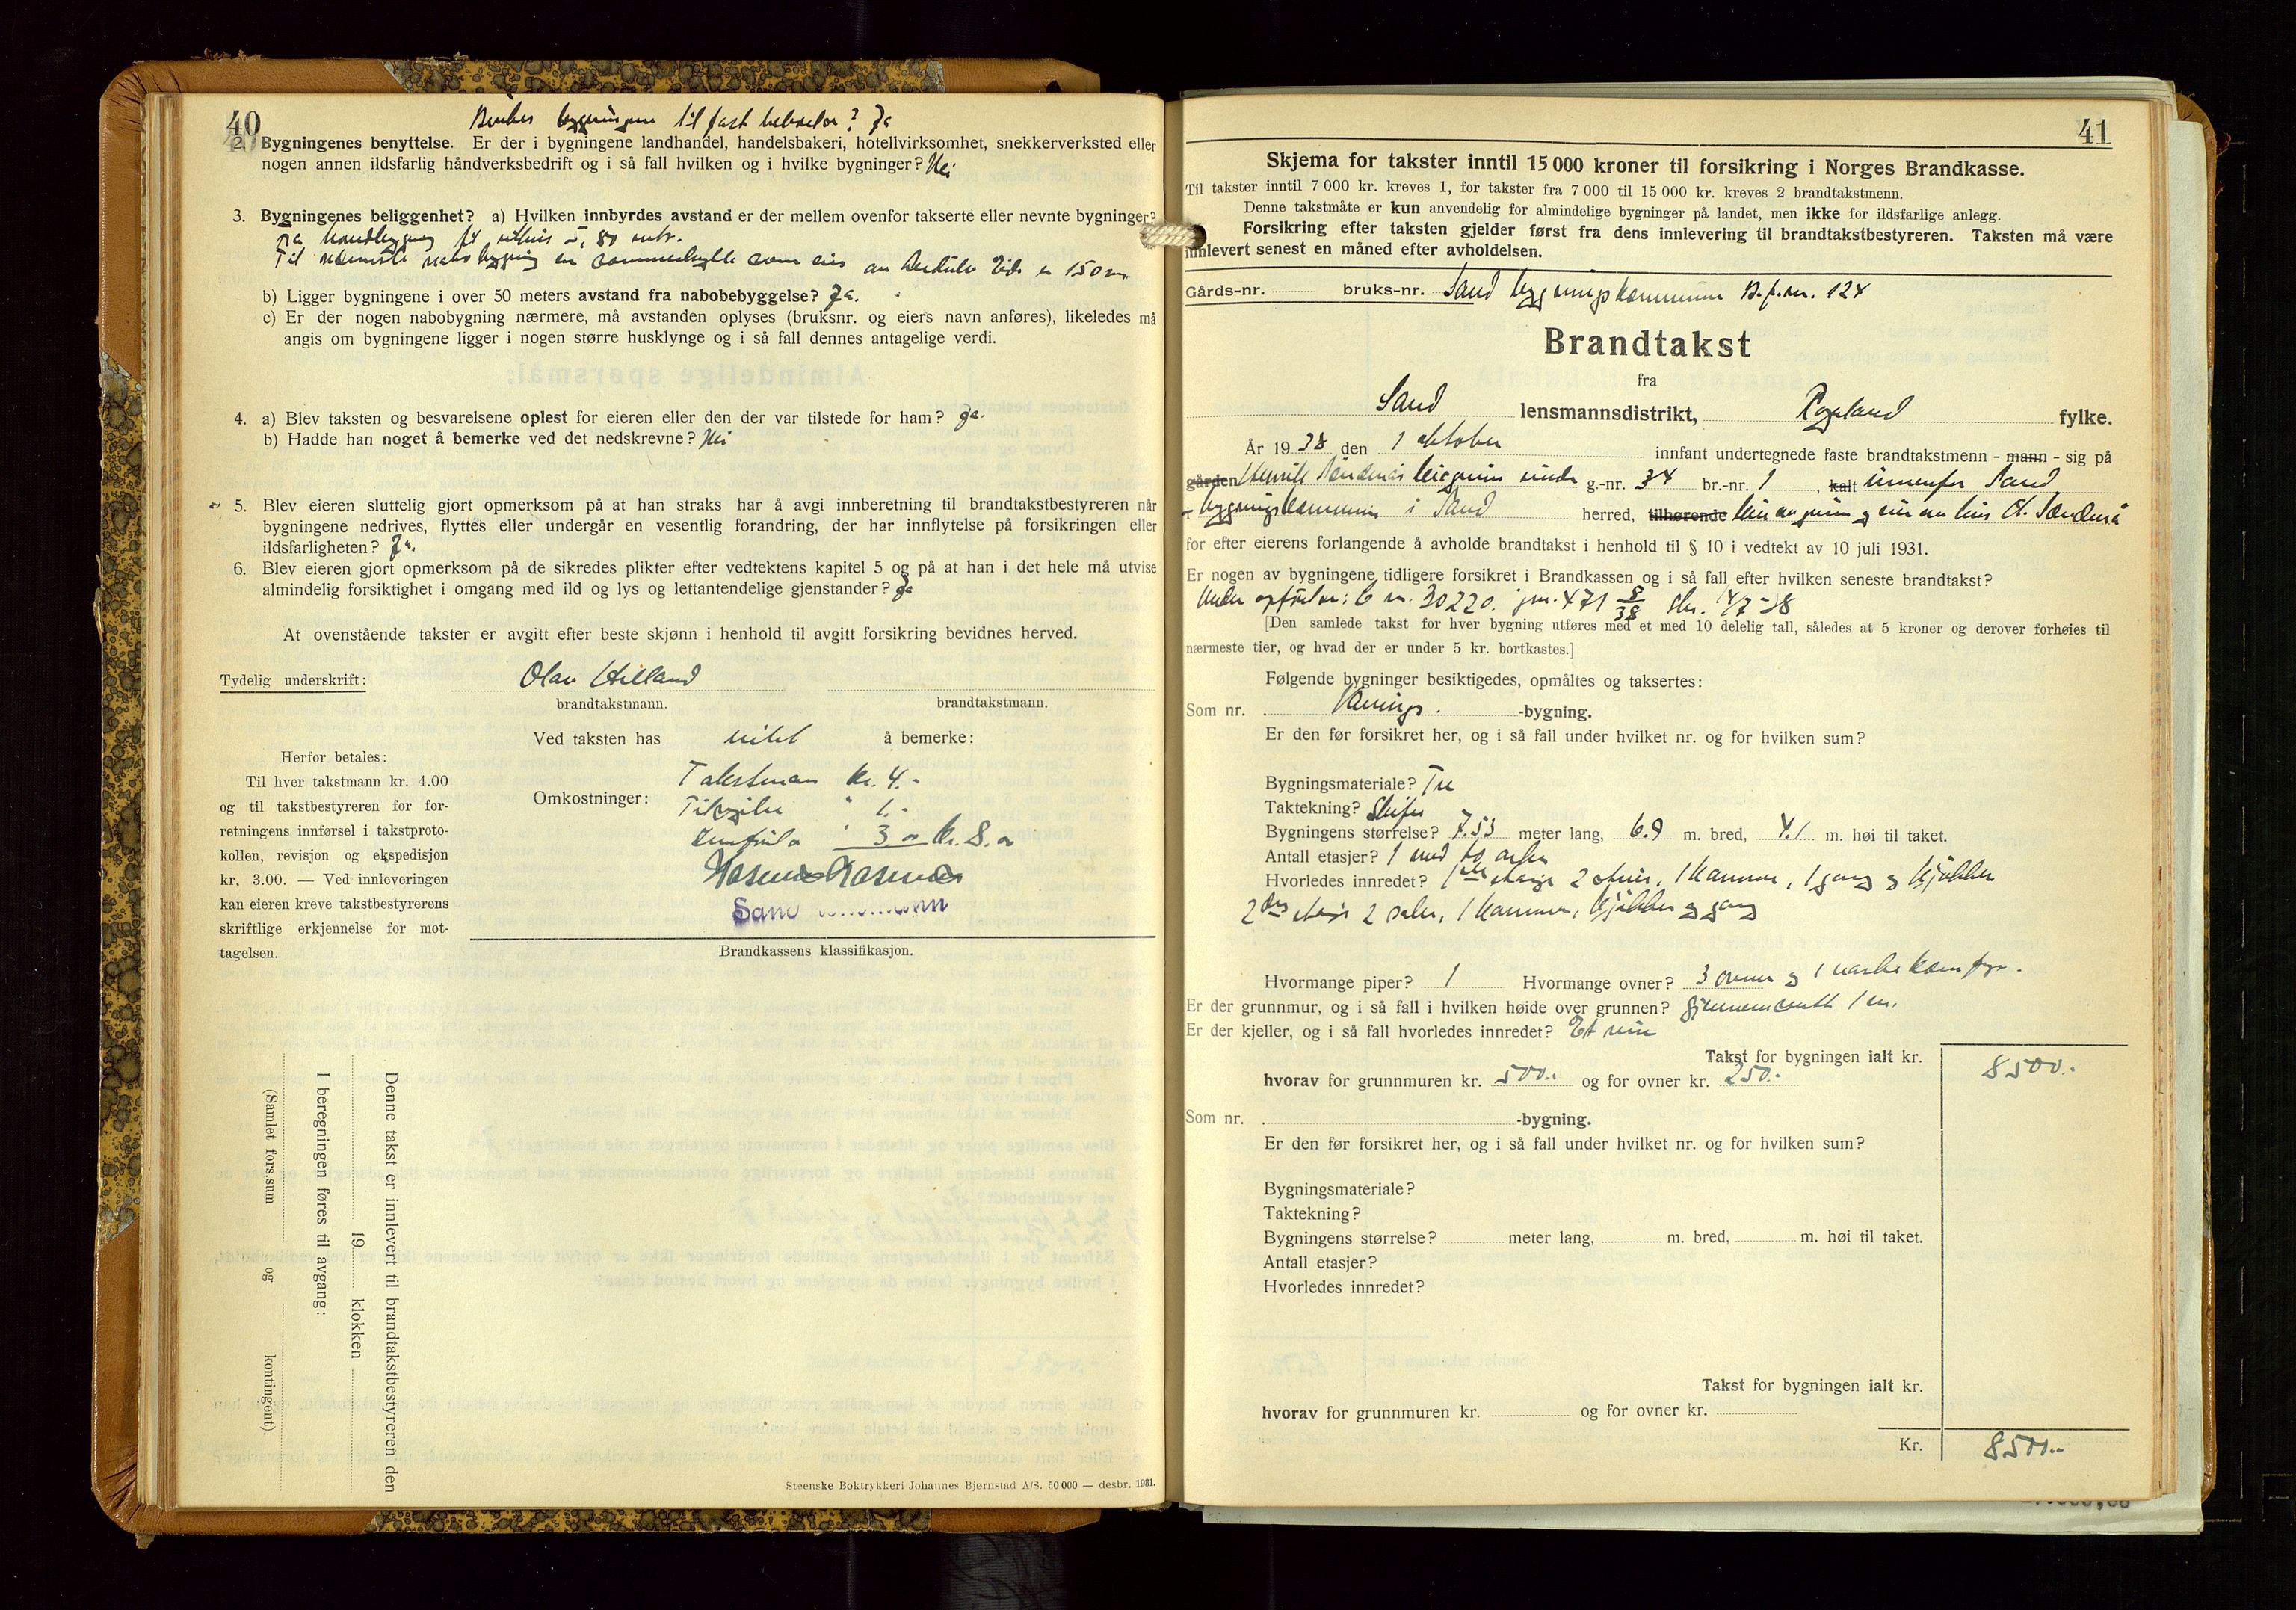 40
Brukes bygningene til fast beboelse? Ja
2. Bygningenes benyttelse. Er der i bygningene landhandel, handelsbakeri, hotellvirksomhet, snekkerverksted eller
nogen annen ildsfarlig håndverksbedrift og i så fall hvilken og i hvilke bygninger? Nei
3. Bygningenes beliggenhet? a) Hvilken innbyrdes avstand er der mellem ovenfor takserte eller nevnte bygninger?
Fra til uthus 5,80 mtr.
Til nærmeste nabobygning en sommerhytte som eies av Eide er 150 m
b) Ligger bygningene i over 50 meters avstand fra nabobebyggelse? Ja.
c) Er der nogen nabobygning nærmere, må avstanden oplyses (bruksnr. og eiers navn anføres), likeledes må
angis om bygningene ligger i nogen større husklynge og i så fall dennes antagelige verdi.
4. a) Blev taksten og besvarelsene oplest for eieren eller den der var tilstede for ham? Ja.
b) Hadde han noget å bemerke ved det nedskrevne? Nei
5. Blev eieren sluttelig gjort opmerksom på at han straks har å avgi innberetning til brandtakstbestyreren når
bygningene nedrives, flyttes eller undergår en vesentlig forandring, der har innflytelse på forsikringen eller
ildsfarligheten? Ja.
6. Blev eieren gjort opmerksom på de sikredes plikter efter vedtektens kapitel 5 og på at han i det hele må utvise
almindelig forsiktighet i omgang med ild og lys og lettantendelige gjenstander? Ja
At ovenstående takster er avgitt efter beste skjønn i henhold til avgitt forsikring bevidnes herved.
Tydelig underskrift: Olav Helland
brandtakstmann. brandtakstmann.
Ved taksten has intet å bemerke:
Herfor betales:
Til hver takstmann kr. 4.00
og til takstbestyreren for for-
retningens innførsel i takstproto-
kollen, revisjon og ekspedisjon
kr. 3.00. — Ved innleveringen
kan eieren kreve takstbestyrerens
skriftlige erkjennelse for mot-
tagelsen.
Omkostninger:
Takstmann kr. 4.-
" 1.-
" 3 - kr. 8.-
Sand
Brandkassens klassifikasjon.
Denne takst er innlevert til brandtakstbestyreren den
19 klokken
I beregningen føres til avgang:
(Samlet fors.sum og kontingent).
Steenske Boktrykkeri Johannes Bjørnstad A/S. 50 000 — desbr. 1931.
41
Skjema for takster inntil 15 000 kroner til forsikring i Norges Brandkasse.
Til takster inntil 7 000 kr. kreves 1, for takster fra 7 000 til 15 000 kr. kreves 2 brandtakstmenn.
Denne takstmåte er kun anvendelig for almindelige bygninger på landet, men ikke for ildsfarlige anlegg.
Forsikring efter taksten gjelder først fra dens innlevering til brandtakstbestyreren. Taksten må være
innlevert senest en måned efter avholdelsen.
Gårds-nr. bruks-nr. Sand bygningskommune B.f.nr. 124
Brandtakst
fra
Sand lensmannsdistrikt, Rogaland fylke.
År 1938 den 1 oktober innfant undertegnede faste brandtakstmenn - mann - sig på
gården Henrik under g.-nr. 34 br.-nr. 1, kalt innenfor Sand
bygningskommune i Sand herred, tilhørende
for efter eierens forlangende å avholde brandtakst i henhold til § 10 i vedtekt av 10 juli 1931.
Er nogen av bygningene tidligere forsikret i Brandkassen og i så fall efter hvilken seneste brandtakst?
Under opførelse: nr. 30220. jnr. 471 8/38 14/7-38
[Den samlede takst for hver bygning utføres med et med 10 delelig tall, således at 5 kroner og derover forhøies til
nærmeste tier, og hvad der er under 5 kr. bortkastes.]
Følgende bygninger besiktigedes, opmåltes og taksertes:
Som nr. Vånings. -bygning.
Er den før forsikret her, og i så fall under hvilket nr. og for hvilken sum?
Bygningsmateriale? Tre
Taktekning? Skifer
Bygningens størrelse? 7.53 meter lang, 6.9 m. bred, 4.1 m. høi til taket.
Antall etasjer? 1 med to arker
Hvorledes innredet? 1ste etasje 2 stuer, 1 kammer, 1 gang og kjøkken
2den etasje 2 saler, 1 kammer, kjøkken og gang
Hvormange piper? 1 Hvormange ovner? 3 ovner og 1 vaskekomfyr.
Er der grunnmur, og i så fall i hvilken høide over grunnen? gjennemsnitt 1 m.
Er der kjeller, og i så fall hvorledes innredet? Et rum
Takst for bygningen ialt kr. 8500.-
hvorav for grunnmuren kr. 500.- og for ovner kr. 250.-
Som nr. -bygning.
Er den før forsikret her, og i så fall under hvilket nr. og for hvilken sum?
Bygningsmateriale?
Taktekning?
Bygningens størrelse? meter lang, m. bred, m. høi til taket.
Antall etasjer?
Hvorledes innredet?
Takst for bygningen ialt kr.
hvorav for grunnmuren kr. og for ovner kr.
Kr. 8500.-